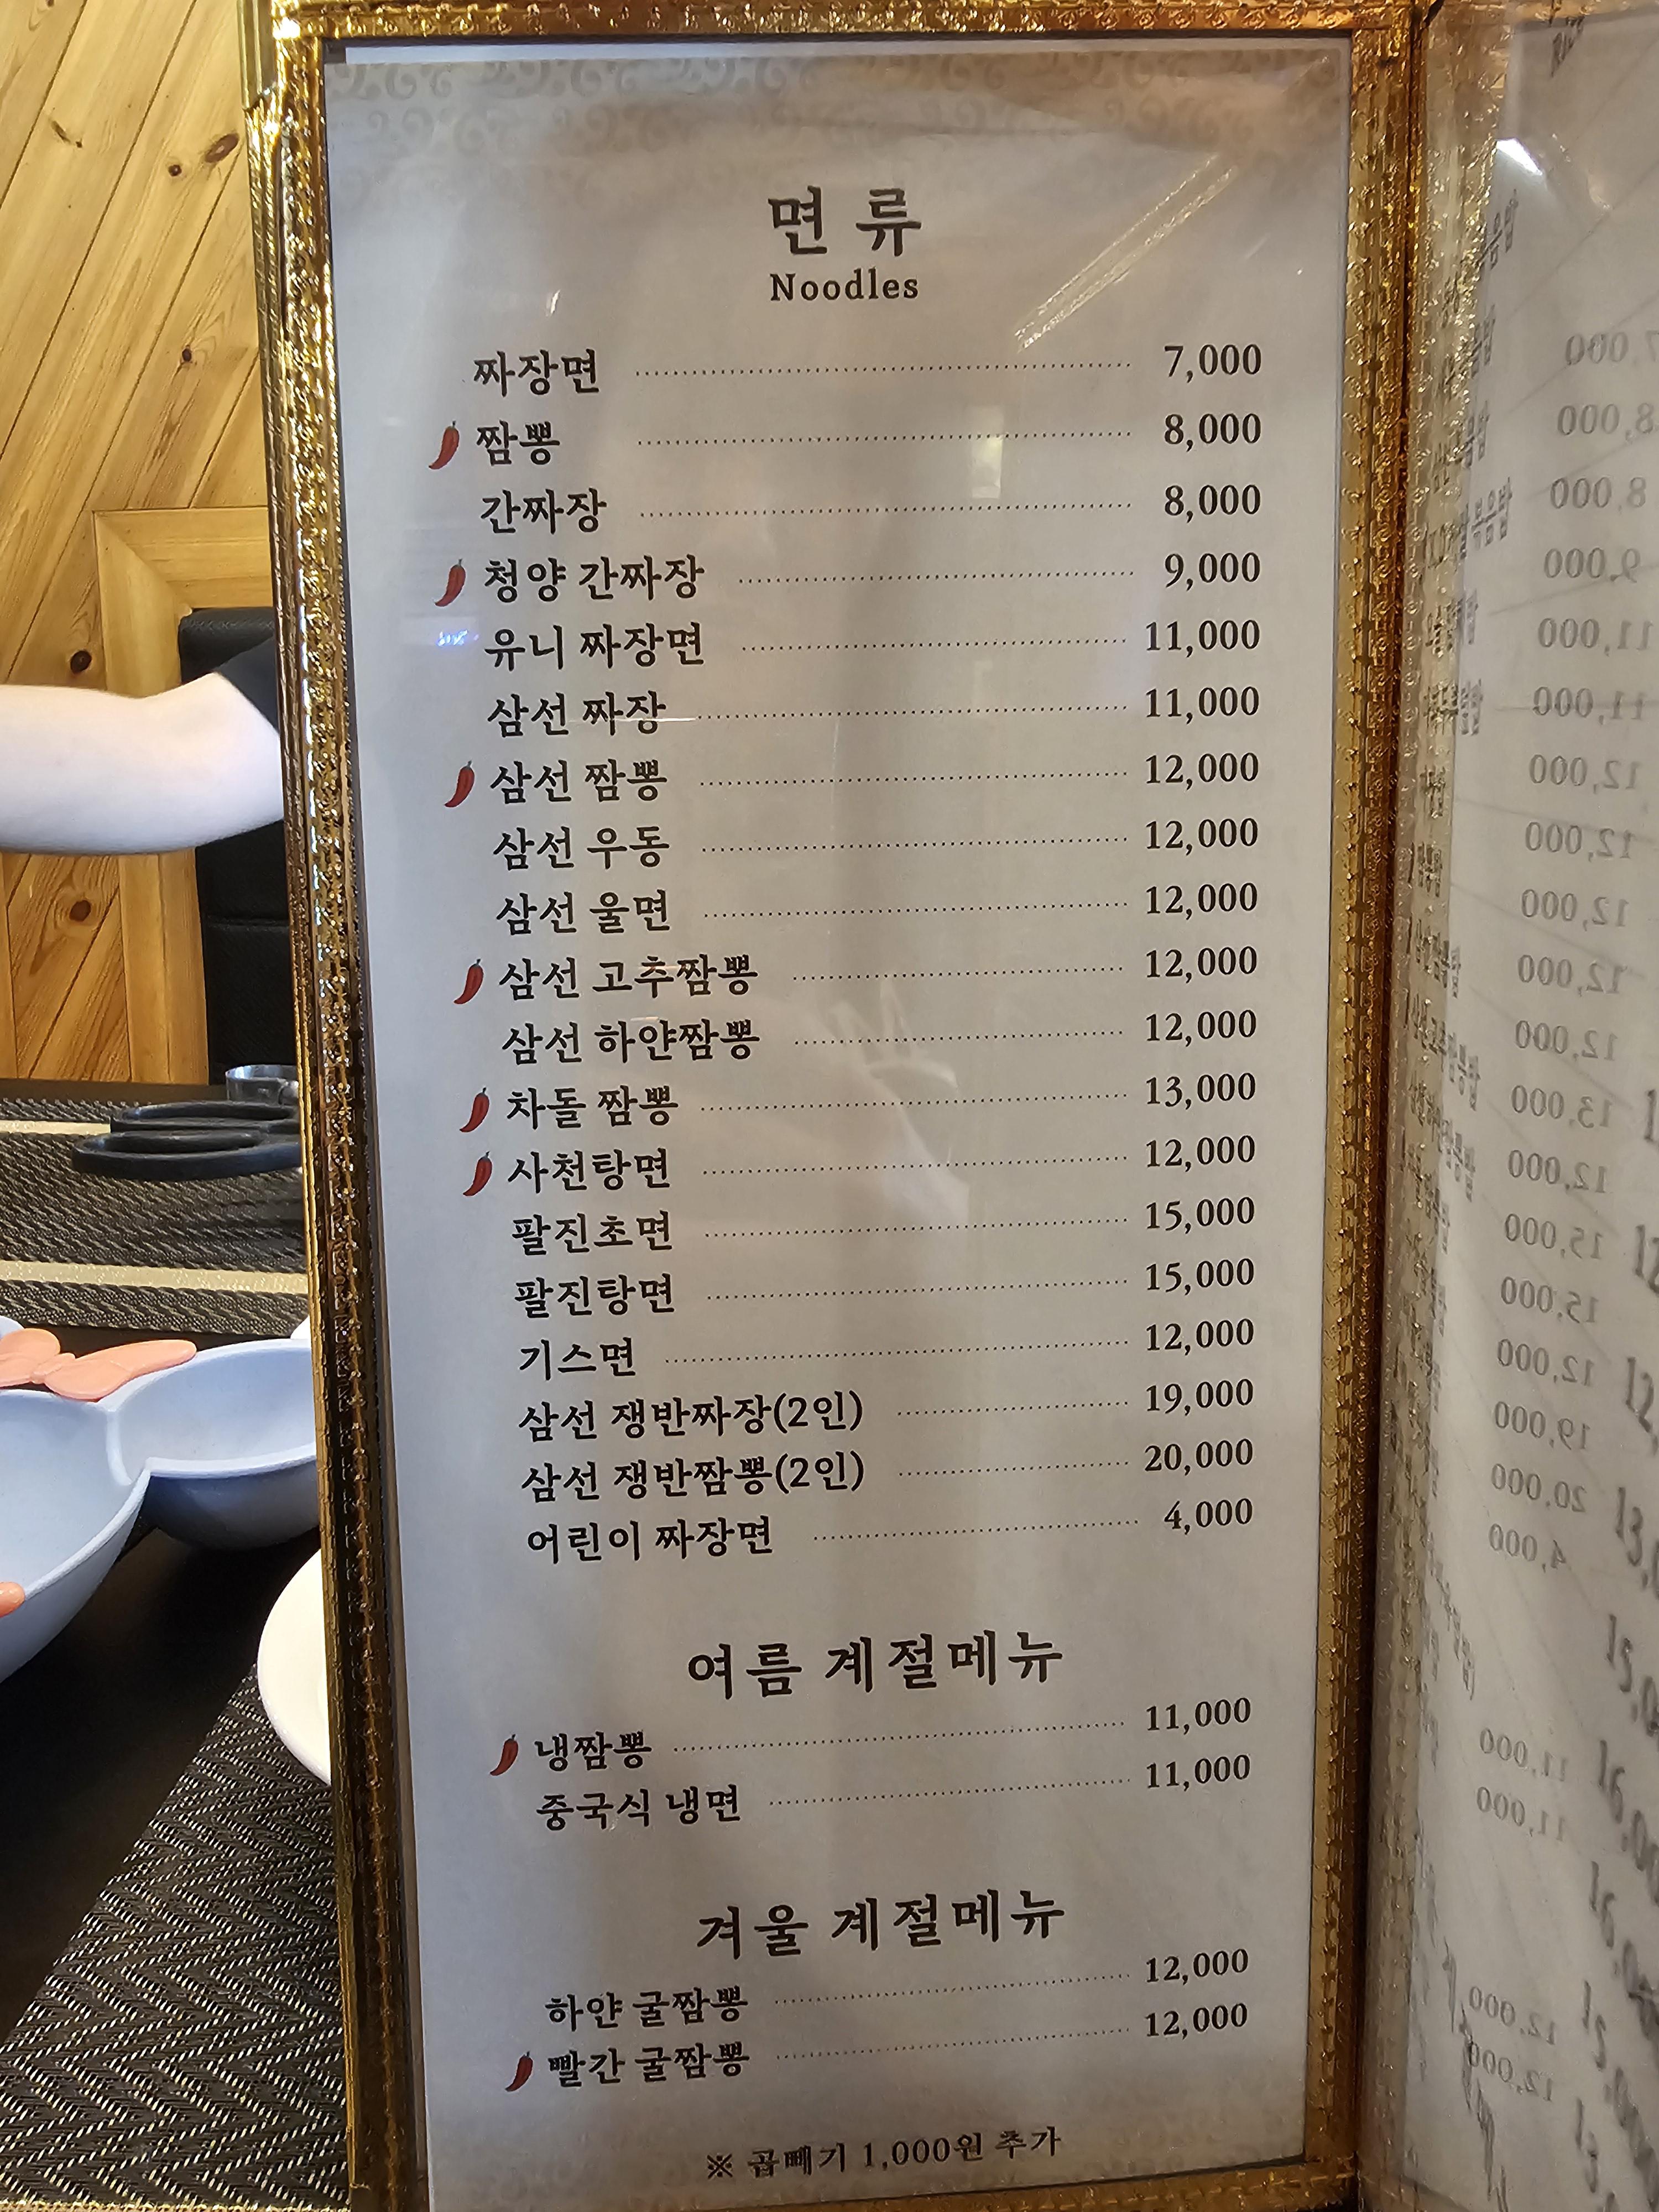 면 류
Noodles
짜장면 7,000
짬뽕 8,000
간짜장 8,000
청양 간짜장 9,000
유니 짜장면 11,000
삼선 짜장 11,000
삼선 짬뽕 12,000
삼선 우동 12,000
삼선 울면 12,000
삼선 고추짬뽕 12,000
삼선 하얀짬뽕 12,000
차돌 짬뽕 13,000
사천탕면 12,000
팔진초면 15,000
팔진탕면 15,000
기스면 12,000
삼선 쟁반짜장(2인) 19,000
삼선 쟁반짬뽕(2인) 20,000
어린이 짜장면 4,000
여름 계절메뉴
냉짬뽕 11,000
중국식 냉면 11,000
겨울 계절메뉴
하얀 굴짬뽕 12,000
빨간 굴짬뽕 12,000
※ 곱빼기 1,000원 추가